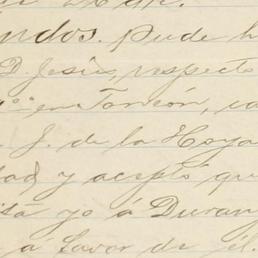 ndos. Pude h
D. Jesús, respecto
en Torreón, ca
J. de la Hoya
dad y aceptó que
yo á Duran
á favor de él.